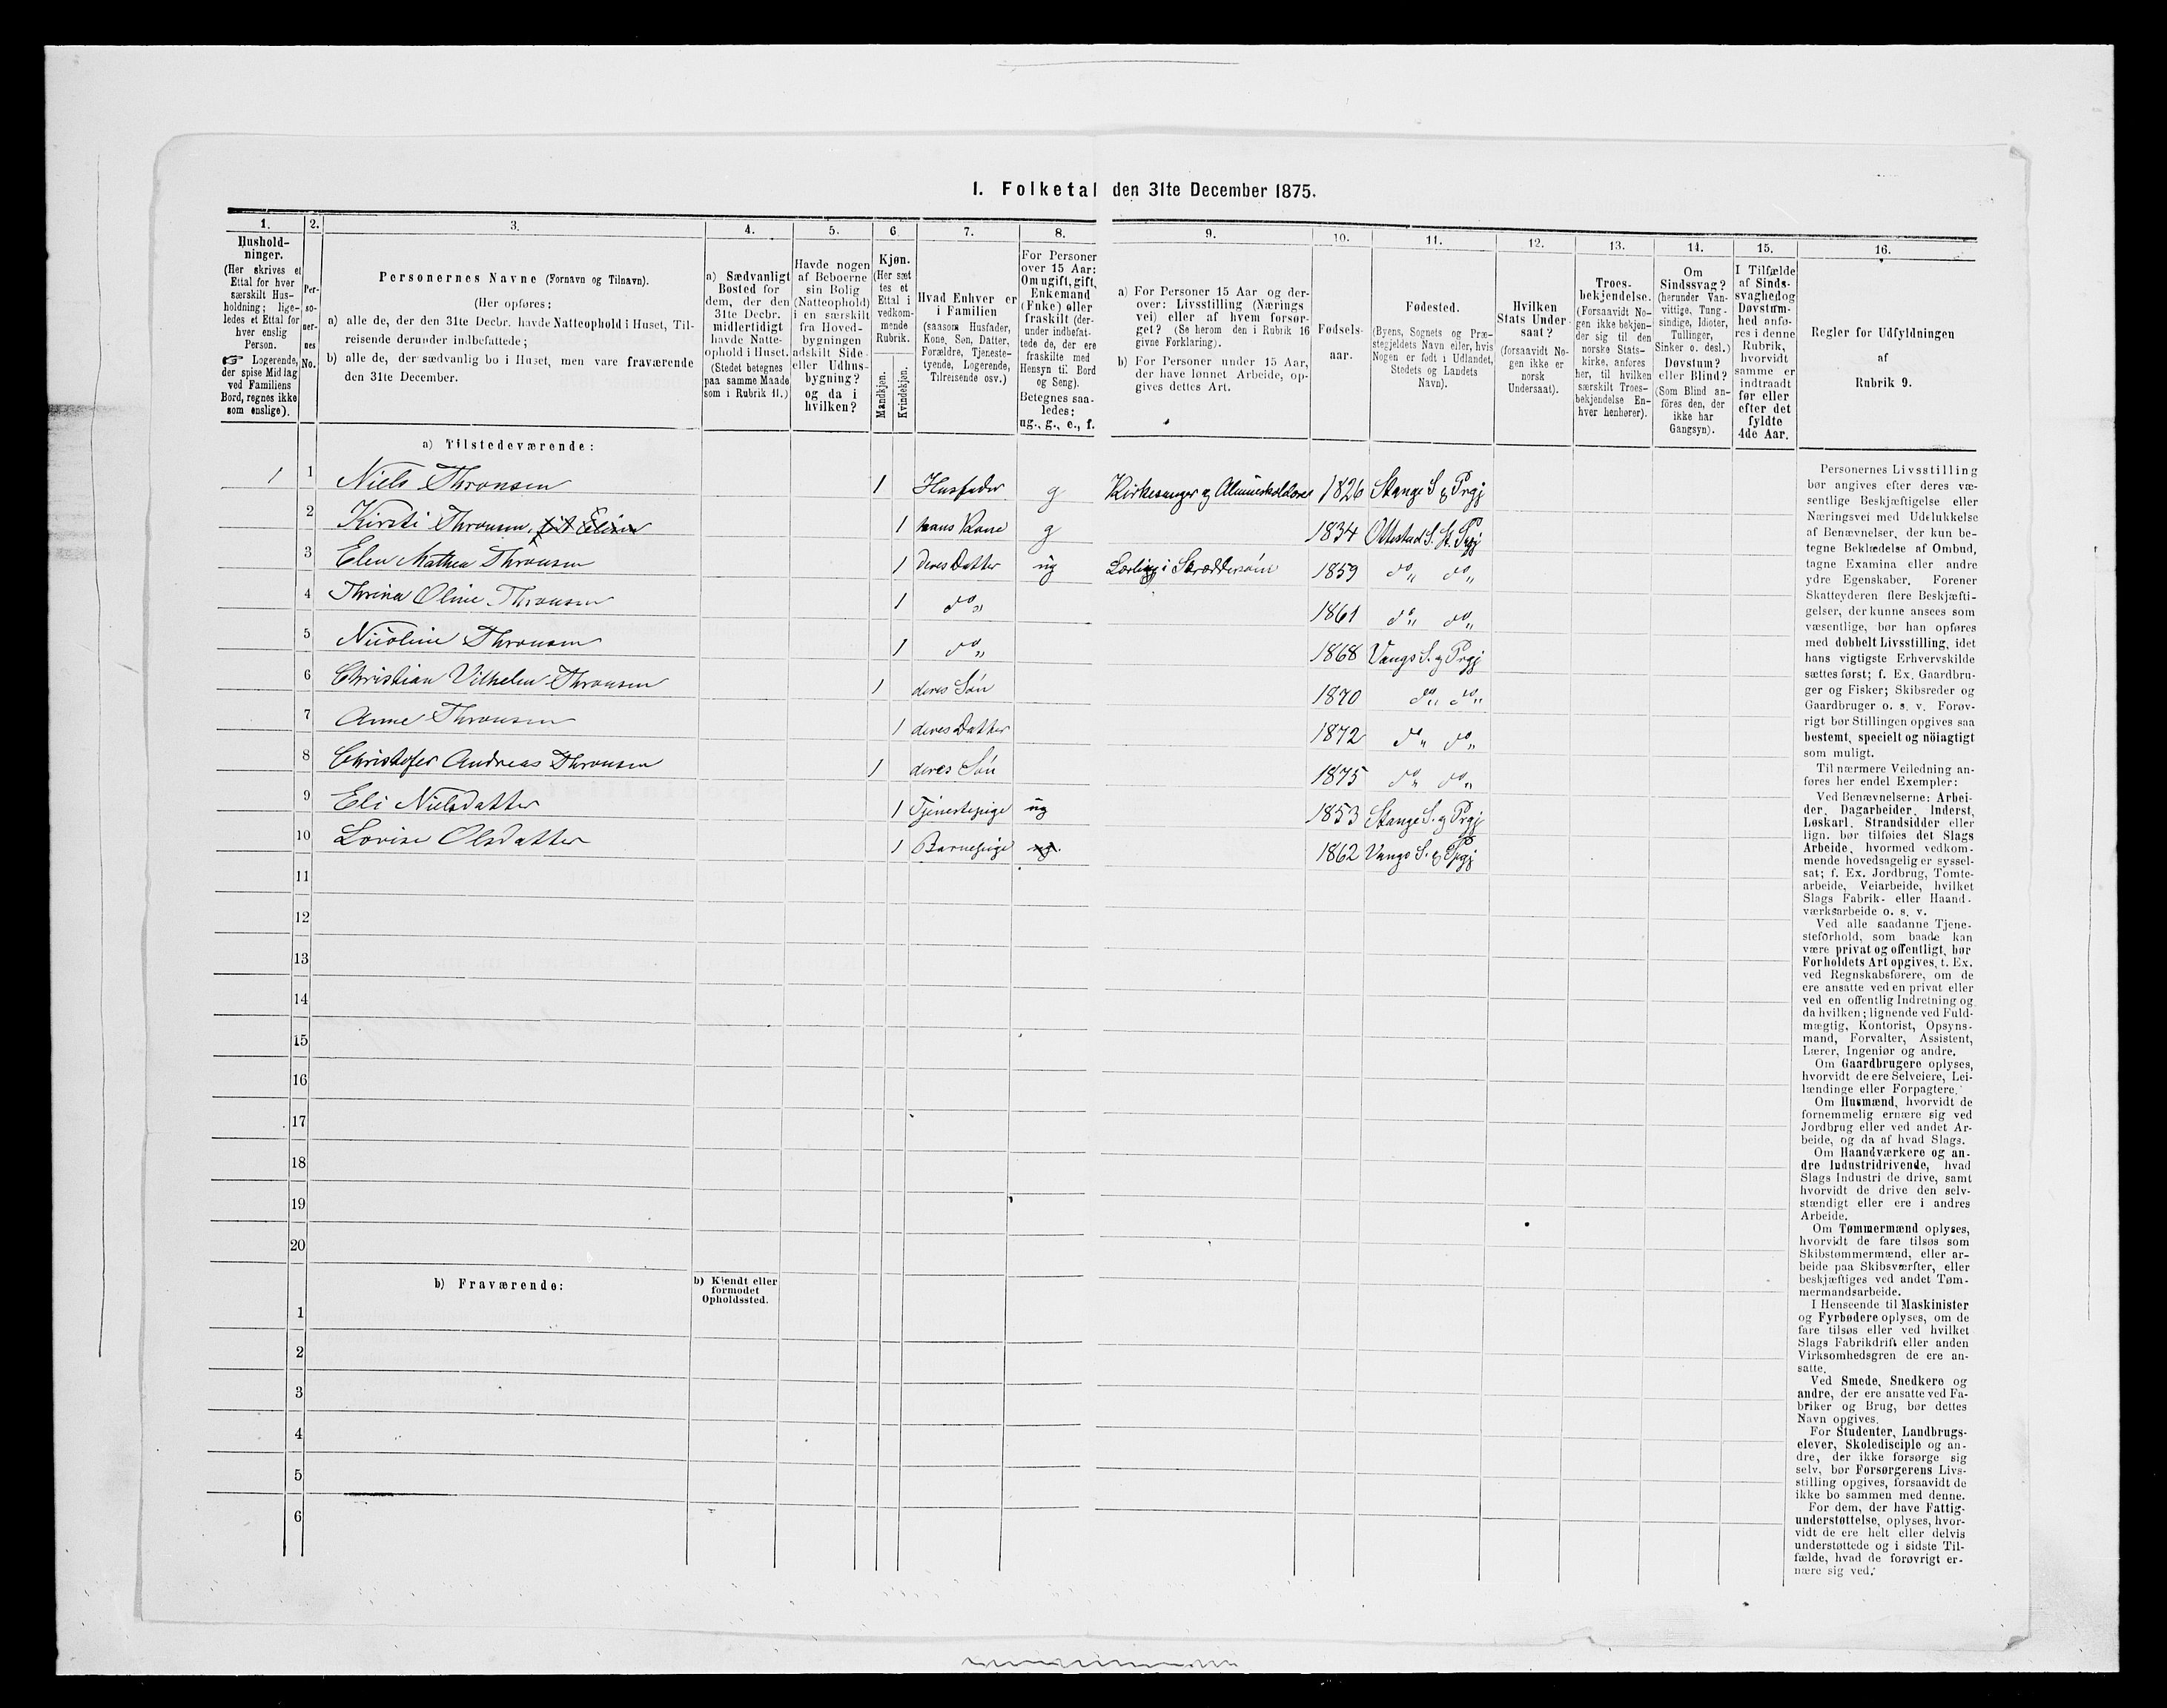 I. Folketal den 31te December 1875.
1. 2. 3. 4. 5. 6. 7. 8. 9. 10. 11. 12. 13. 14. 15. 16.
Husholdninger.
(Her skrives et
Ettal for hver
særskilt Hus-
holdning; lige-
ledes et Ettal for
hver enslig
Person.
☞ Logerende,
der spise Middag
ved Familiens
Bord, regnes ikke
som enslige).
Per-
so-
ner-
nes
No.
Personernes Navne (Fornavn og Tilnavn).
(Her opføres:
a) alle de, der den 31te Decbr. havde Natteophold i Huset, Til-
reisende derunder indbefattede;
b) alle de, der sædvanlig bo i Huset, men vare fraværende
den 31te December.
a) Sædvanligt
Bosted for
dem, der den
31te Decbr.
midlertidigt
havde Natte-
ophold i Huset.
(Stedet betegnes
paa samme Maade
som i Rubrik 11.)
Havde nogen
af Beboerne
sin Bolig
(Natteophold)
i en særskilt
fra Hoved-
bygningen
adskilt Side-
eller Udhus-
bygning?
og da i
hvilken?
Kjøn.
(Her sæt
tes et
Ettal i
vedkom-
mende
Rubrik.
Mandkjøn.
Kvindekjøn.
Hvad Enhver er
i Familien
(saasom Husfader,
Kone, Søn, Datter,
Forældre, Tjeneste-
tyende, Logerende,
Tilreisende osv.)
For Personer
over 15 Aar:
Om ugift, gift,
Enkemand
(Enke) eller
fraskilt (der-
under indbefat-
tede de, der ere
fraskilte med
Hensyn til Bord
og Seng).
Betegnes saa-
ledes:
ug., g., e., f.
a) For Personer 15 Aar og der-
over: Livsstilling (Nærings
vei) eller af hvem forsør-
get? (Se herom den i Rubrik 16
givne Forklaring).
b) For Personer under 15 Aar,
der have lønnet Arbeide, op-
gives dettes Art.
Fødsels-
aar.
Fødested.
(Byens, Sognets og Præ-
stegjeldets Navn eller, hvis
Nogen er født i Udlandet,
Stedets og Landets
Navn).
Hvilken
Stats Under
saat?
(forsaavidt No-
gen ikke er
norsk
Undersaat).
Troes-
bekjendelse.
(Forsaavidt No-
gen ikke bekjen-
der sig til den
norske Stats-
kirke, anføres
her, til hvilken
særskilt Troes-
bekjendelse En-
hver henhører).
Om
Sindssvag?
(herunder Van-
vittige, Tung-
sindige, Idioter,
Tullinger,
Sinker o. desl.)
Døvstum?
eller Blind?
(Som Blind an-
føres den, der
ikke har
Gangsyn).
I Tilfælde
af Sinds-
svaghed og
Døvstum-
hed anfø-
res i denne
Rubrik,
hvorvidt
samme er
indtraadt
før eller
efter det
fyldte
4de Aar.
Regler for Udfyldningen
af
Rubrik 9.
a) Tilstedeværende:
1 1 Niels Thronsen 1 Husfader g Kirkesanger og 1826 Stange S. & Prgj
2 Kirsti Thronsen, 1 hans Kone g 1834 Ottestad S. St. Prgj
3 Elen Mathea Thronsen 1 deres Datter ug i Skræddersøm 1859 do„ do„
4 Thrina Oline Thronsen 1 do„ 1861 do„ do„
5 Nicoline Thronsen 1 do„ 1868 Vangs S. og Prgj
6 Christian Vilhelm Thronsen 1 deres Søn 1870 do„ do„
7 Anne Thronsen 1 deres Datter 1872 do„ do„
8 Christofer Andreas Thronsen 1 deres Søn 1875 do„ do„
9 Eli Nielsdatter 1 Tjenestepige ug 1853 Stange S. og Prgj
10 Lovise Olsdatter 1 Barnepige ug. 1862 Vangs S. & Prgj
11
12
13
14
15
16
17
18
19
20
b) Fraværende:
b) Kjendt eller
formodet
Opholdssted.
1
2
3
4
5
6
Personernes Livsstilling
bør angives efter deres væ-
sentlige Beskjæftigelse eller
Næringsvei med Udelukkelse
af Benævnelser, der kun be-
tegne Beklædelse af Ombud,
tagne Examina eller andre
ydre Egenskaber. Forener
Skatteyderen flere Beskjæfti-
gelser, der kunne ansees som
væsentlige, bør han opføres
med dobbelt Livsstilling, idet
hans vigtigste Erhvervskilde
sættes først; f. Ex. Gaardbru-
ger og Fisker; Skibsreder og
Gaardbruger o. s. v. Forøv-
rigt bør Stillingen opgives saa
bestemt, specielt og nöiagtigt
som muligt.
Til nærmere Veiledning an-
føres her endel Exempler:
Ved Benævnelserne: Arbei-
der, Dagarbeider, Inderst,
Løskarl, Strandsidder eller
lign. bør tilføies det Slags
Arbeide, hvormed vedkom-
mende hovedsagelig er syssel-
sat; f. Ex. Jordbrug, Tomte-
arbeide, Veiarbeide, hvilket
Slags Fabrik- eller Haand-
værksarbeide o. s. v.
Ved alle saadanne Tjene-
steforhold, som baade kan
være privat og offentligt, bør
Forholdets Art opgives, t. Ex.
ved Regnskabsførere, om de
ere ansatte ved en privat eller
ved en offentlig Indretning og
da hvilken; lignende ved Fuld-
mægtig, Kontorist, Opsyns-
mand, Forvalter, Assistent,
Lærer, Ingeniør og andre.
Om Gaardbrugere oplyses,
hvorvidt de ere Selveiere, Lei-
lændinge eller Forpagtere.
Om Husmænd, hvorvidt de
fornemmelig ernære sig ved
Jordbrug eller ved andet Ar-
beide, og da af hvad Slags.
Om Haandværkere og an-
dre Industridrivende, hvad
Slags Industri de drive, samt
hvorvidt de drive den selv-
stændigt eller ere i andres
Arbeide.
Om Tømmermænd oplyses,
hvorvidt de fare tilsøs som
Skibstømmermænd, eller ar-
beide paa Skibsværfter, eller
beskjæftiges ved andet Tøm-
mermandsarbeide.
I Henseende til Maskinister
og Fyrbødere oplyses, om de
fare tilsøs eller ved hvilket
Slags Fabrikdrift eller anden
Virksomhedsgren de ere an-
satte.
Ved Smede, Snedkere og
andre, der ere ansatte ved Fa-
briker og Brug, bør dettes
Navn opgives.
For Studenter, Landbrugs-
elever, Skoledisciple og an-
dre, der ikke forsørge sig
selv, bør Forsørgerens Livs-
stilling opgives, forsaavidt de
ikke bo sammen med denne.
For dem, der have Fattig-
understøttelse, oplyses, hvor-
vidt de ere helt eller delvis
understøttede og i sidste Til-
fælde, hvad de forøvrigt er-
nære sig ved.